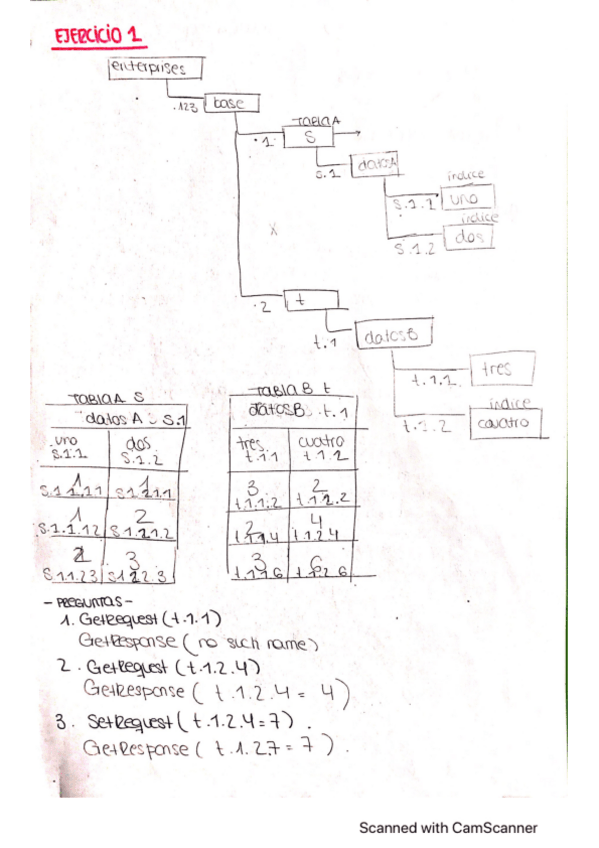 EJERCICIO 1
enterprises
.123 base
TABLA A
.1. S
S.1 datosA
indice
S.1.1 uno
indice
S.1.2 dos
x
.2 t
t.1 datosB
t.1.1. tres
indice
t.1.2 cuatro
TABLA A S
datos A : S.1
uno dos
S.1.1 S.1.2
1 1
S.1.1.1.1 S.1.2.1.1
1 2
S.1.1.12 S.1.2.1.2
2 3
S.1.1.23 S.1.2.2.3
TABLA B t
datosB : t.1
tres cuatro
t.1.1 t.1.2
3 2
t.1.1.2 t.1.2.2
2 4
t.1.1.4 t.1.2.4
3 6
t.1.1.6 t.1.2.6
- PREGUNTAS -
1. GetRequest (t.1.1)
GetResponse ( no such name)
2. GetRequest (t.1.2.4)
GetResponse ( t.1.2.4 = 4)
3. SetRequest ( t.1.2.4=7) .
GetResponse ( t.1.2.7 = 7 ) .
Scanned with CamScanner